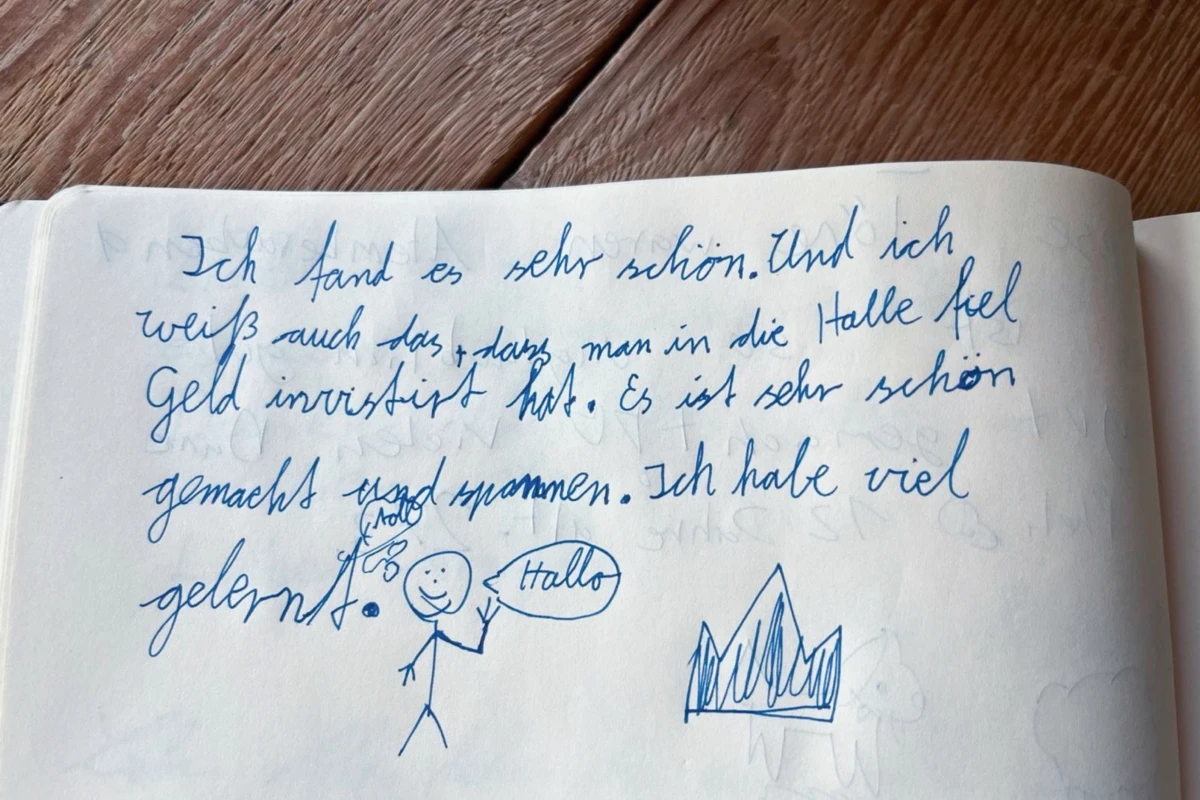 Ich fand es sehr schön. Und ich
weiß auch das, dass man in die Halle fiel
Geld invistirt hat. Es ist sehr schön
gemacht und spannen. Ich habe viel
gelernt.
Hallo